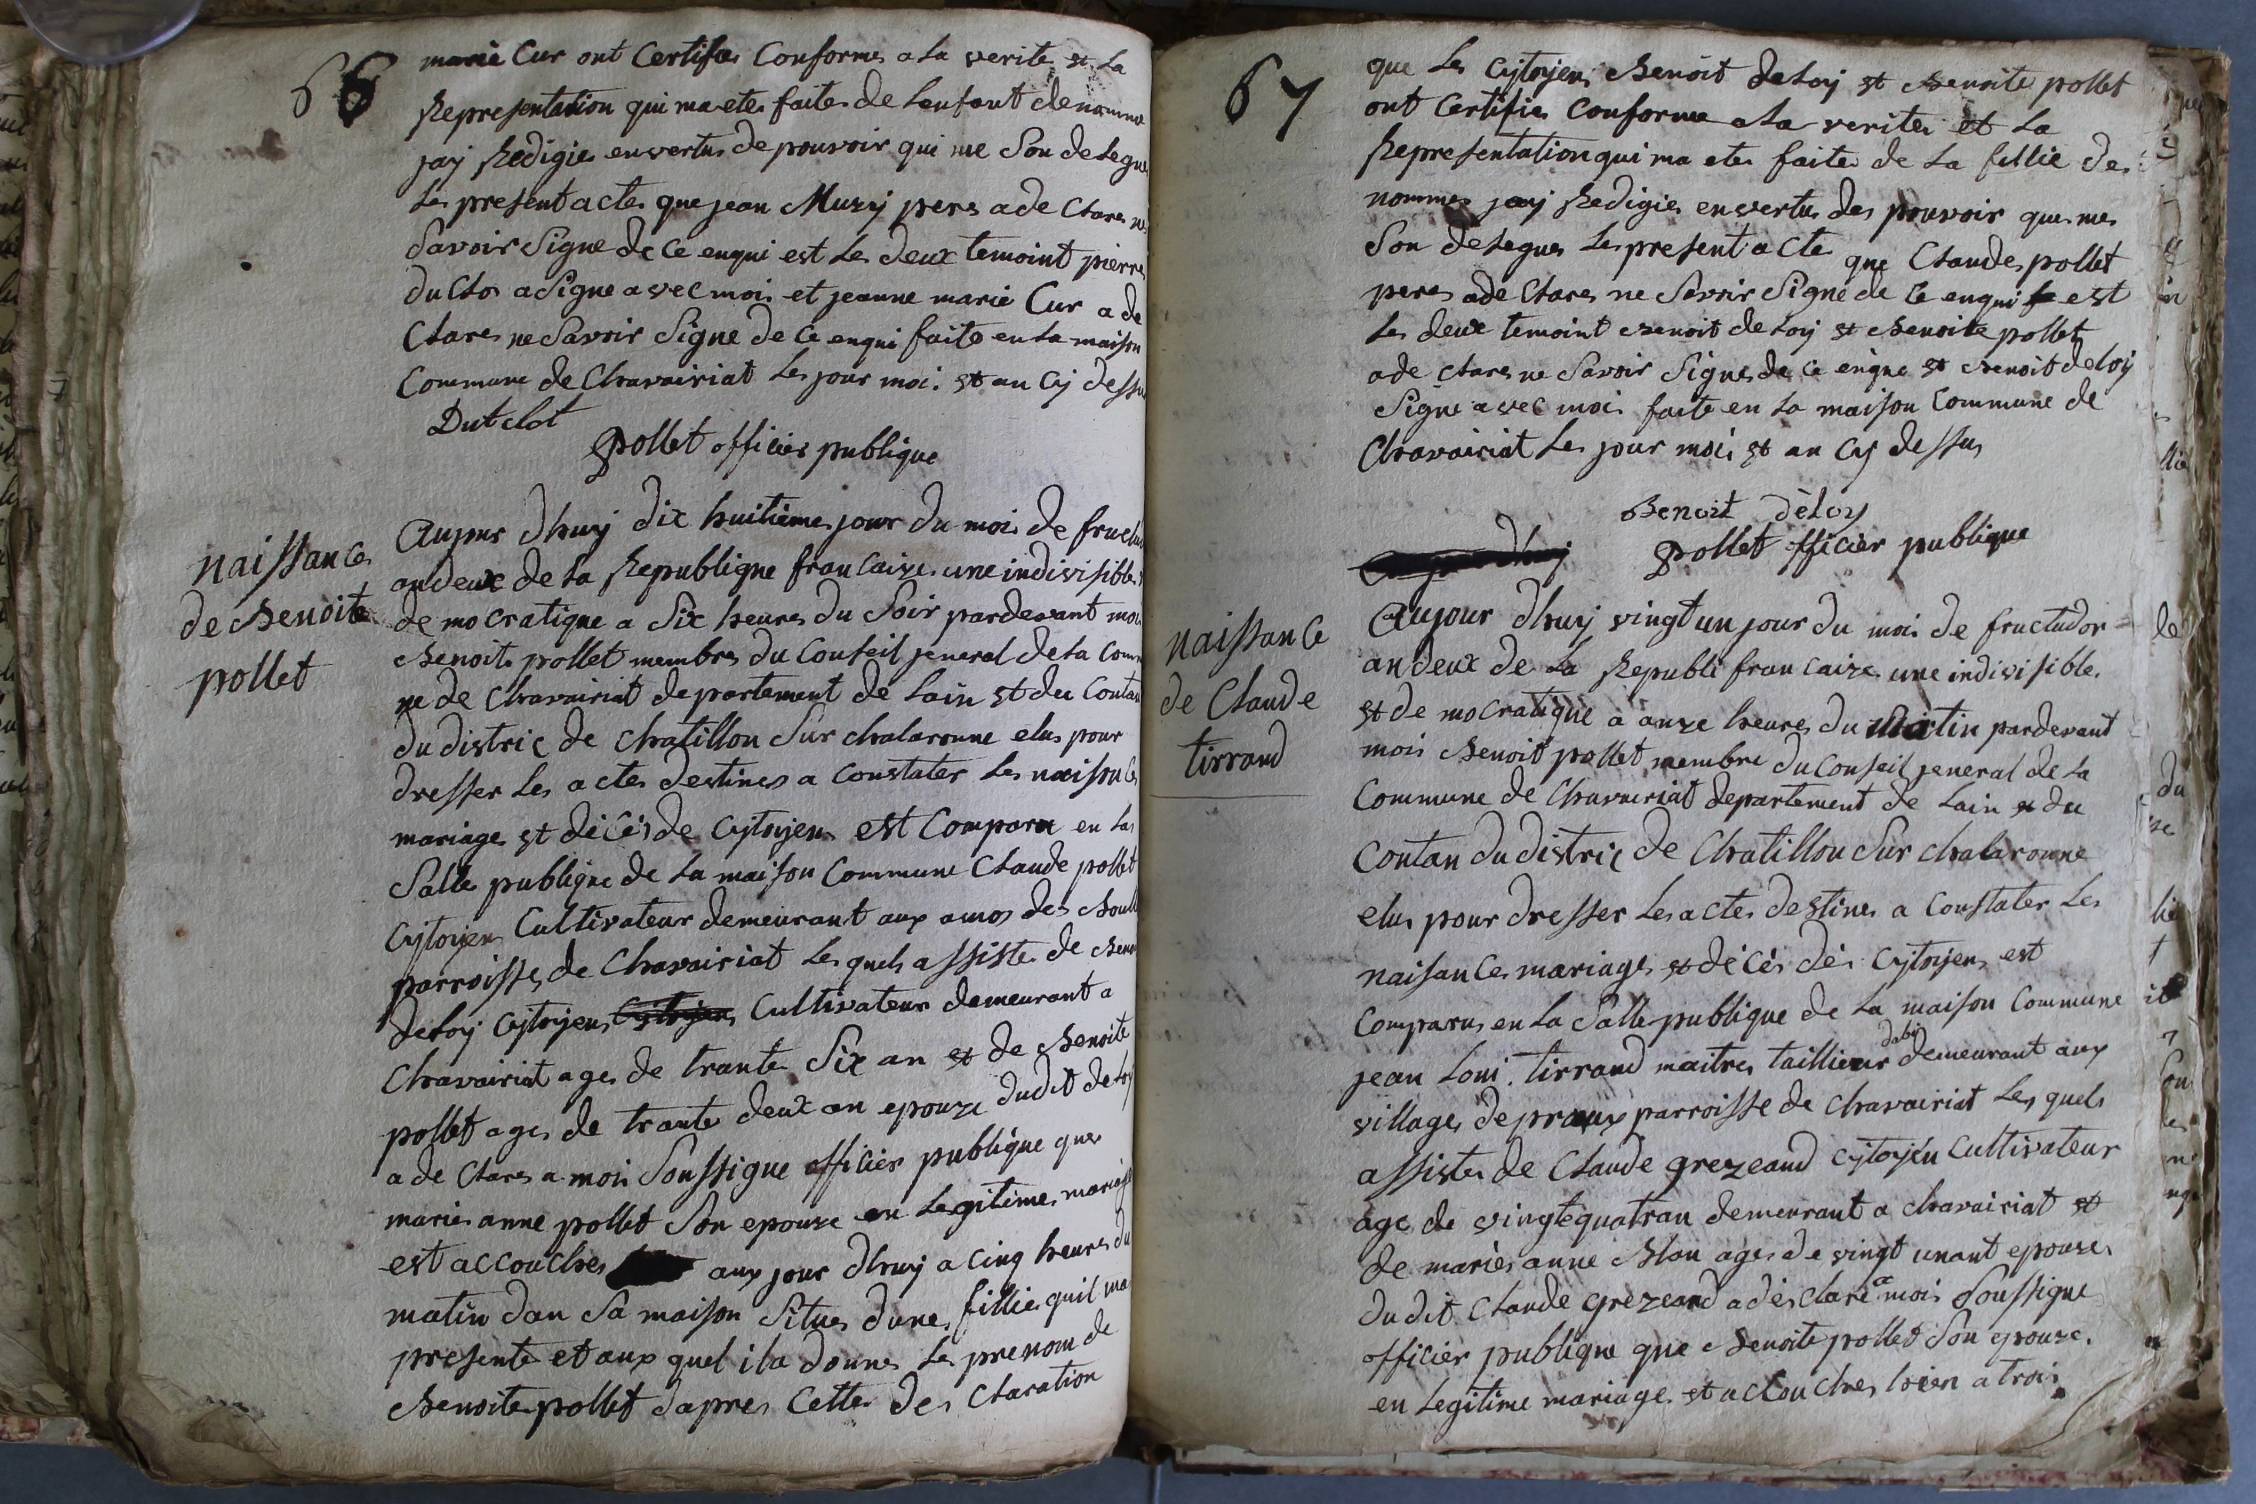 66
marie Cur ont Certifies Conformes a La verite et La
Representation qui ma etes faites de Lenfant denomme
jay Redigies en vertus de pouvoir qui me Son delegue
Les present actes que jean Muzy peres a de Clares ne
Savoir Signe de Ce enqui est Les deux temoint pierres
du Clos a Signe avec moi et jeanne marie Cur a de
Clares ne Savoir Signe de Ce enqui faite en La maison
Commune de Chavairiat Les jour moi et an Cy dessu
Dutclot
pollet officies publique
naissances
de Benoite
pollet
Aujour dhuy dix huitiemes jour du moi de fructu
an deux de La Republique francaize une indivisibles
de mocratique a Six heures du Soir pardevant moi
Benoite pollet membres du Conseil jeneral de La Comm
ne de Chavairiat departement de Lain et du Contan
du distric de Chatillon Sur chalaronne elus pour
dresser Les actes destines a Constater Les naisances
mariages et décés de Cytoyens est Comparu en La
Salle publique de La maison Commune Claude pollet
Cytoyens Cultivateur demeurant aux amos des
parroisses de Chavairiat Les quels assistes de
deLoy Cytoyens Cultivateur demeurant a
Chavairiat ages de trante Six an et de Benoite
pollet ages de trante deux an epouze dudit deLoy
a de Clares a moi Soussigue officies publique ques
maries anne pollet Son epouze en Legitimes mariage
est accouches aux jour dhuy a Cinq heures du
matin dan Sa maison Situes dunes fillies quil ma
presente et aux quel il a donnes Le prenom de
Benoite pollet dapres Cettes des Claration
67
que Les Cytoyens Benoit deLoy et Benoite pollet
ont Certifies Conforme a La verites et La
Representation qui ma etes faites de La fillie de
nommes jay Redigies en vertus des pouvoir ques mes
Son delegues Les present acte que Claudes pollet
peres a de Clares ne Savoir Signe de Ce enqui est
Les deux temoint Benoit deLoy et Benoite pollet
a de Clares ne Savoir Signes de Ce enque et Benoit deLoy
Signe avec moi faite en La maison Commune de
Chavairiat Les jour moi et an Cy dessus
Benoit dèLoy
pollet officier publique
naissance
de Claude
tirrand
Aujour dhuy vingt un jour du moi de fructudor
an deux de La Republi francaize une indivisible
et de mocratique a onze heures du Matin pardevant
moi Benoit pollet membre du Conseil jeneral de La
Commune de Chavairiat departement de Lain et du
Contan du distric de Chatillon Sur chalaronne
elus pour dresser Les actes destines a Constater Les
naisances mariages et décés dés Cytoyens est
Comparus en La Salle publique de La maison Commune
jean Loui tirrand maitres taillieur dabi demeurant aux
villages de preaux parroisse de Chavairiat Les quels
assistes de Claude grezeaud Cytoyén Cultivateur
age de vingtequatran demeurant a Chavairiat et
de maries anne Blan ages de vingt unant epouzes
du dit Claude grezeand a des Clare a moi Soussigue
officier publique que Benoite pollet Son epouze
en Legitime mariages et accouches hier a troi